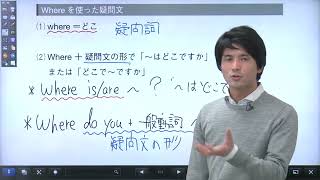 Where を使った疑問文
(1) where＝どこ 疑問詞
(2) Where ＋ 疑問文の形で「〜はどこですか」
または「どこで〜ですか」
* Where is/are 〜 ? 〜はどこで
* Where do you + 一般動詞 〜
疑問文の形